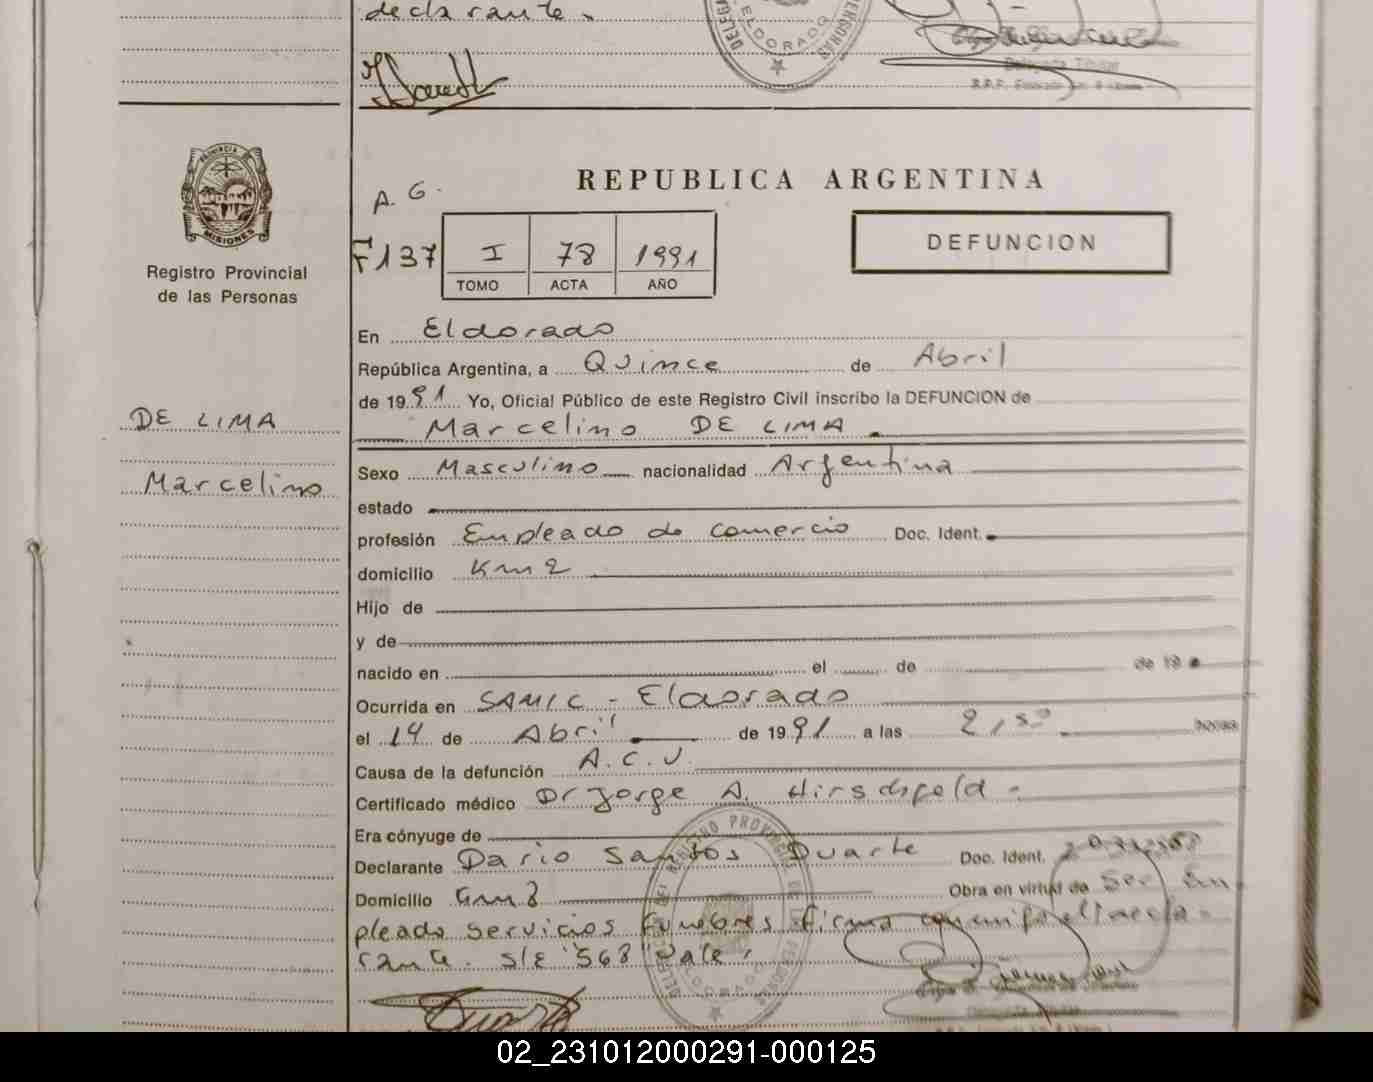 declarante.
DELEGA
ELDORADO
PERSONAS
Delegada Titular
PROVINCIA
MISIONES
Registro Provincial
de las Personas
A. G.
REPUBLICA ARGENTINA
F137
I 78 1991
TOMO ACTA AÑO
DEFUNCION
En Eldorado
República Argentina, a Quince de Abril
de 1991 Yo, Oficial Público de este Registro Civil inscribo la DEFUNCION de
DE LIMA
Marcelino DE LIMA
Marcelino
Sexo Masculino nacionalidad Argentina
estado
profesión Empleado de comercio Doc. Ident.
domicilio Km 2
Hijo de
y de
nacido en el de de 19
Ocurrida en SAMIC - Eldorado
el 14 de Abril de 1991 a las 2,50 horas
Causa de la defunción A.C.V.
Certificado médico Dr Jorge A. Hirschfeld -
Era cónyuge de
Declarante Dario Santos Duarte Doc. Ident.
Domicilio Km 8 Obra en virtud de Ser Em
pleado servicios funebres firma el decla-
rante. S/E 568 Vale,
REGISTRO PROVINCIAL DE LAS PERSONAS
ELDORADO
02_231012000291-000125